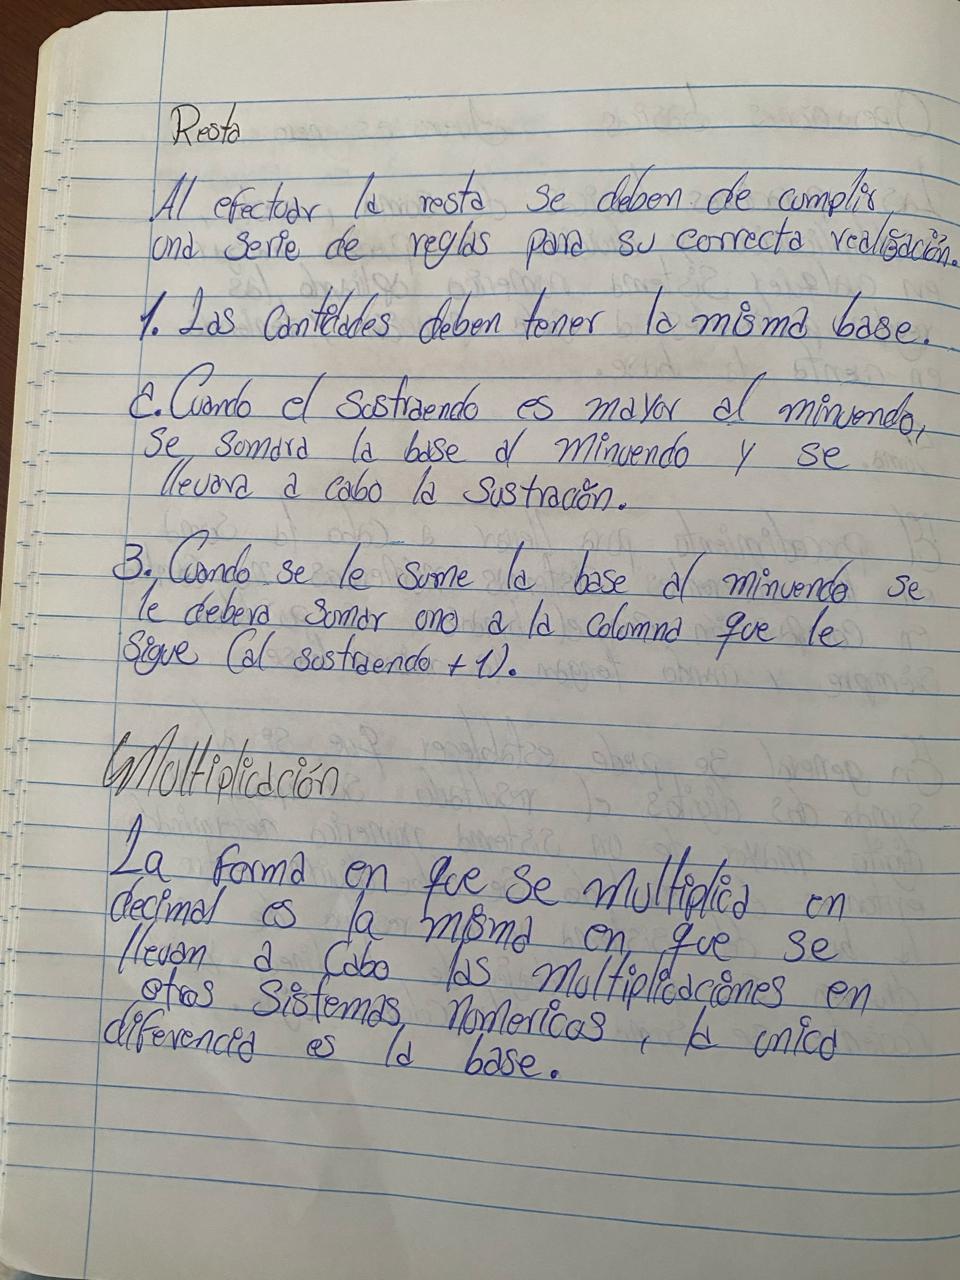 Resta
Al efectuar la resta se deben de cumplir
una serie de reglas para su correcta realización.
1. Las cantidades deben tener la misma base.
2. Cuando el sustraendo es mayor al minuendo,
se sumara la base al minuendo y se
llevara a cabo la sustración.
3. Cuando se le sume la base al minuendo se
le debera sumar uno a la columna que le
sigue (al sustraendo + 1).
Multiplicación
La forma en que se multiplica en
decimal es la misma en que se
llevan a cabo las multiplicaciones en
otros sistemas numericos, la unica
diferencia es la base.